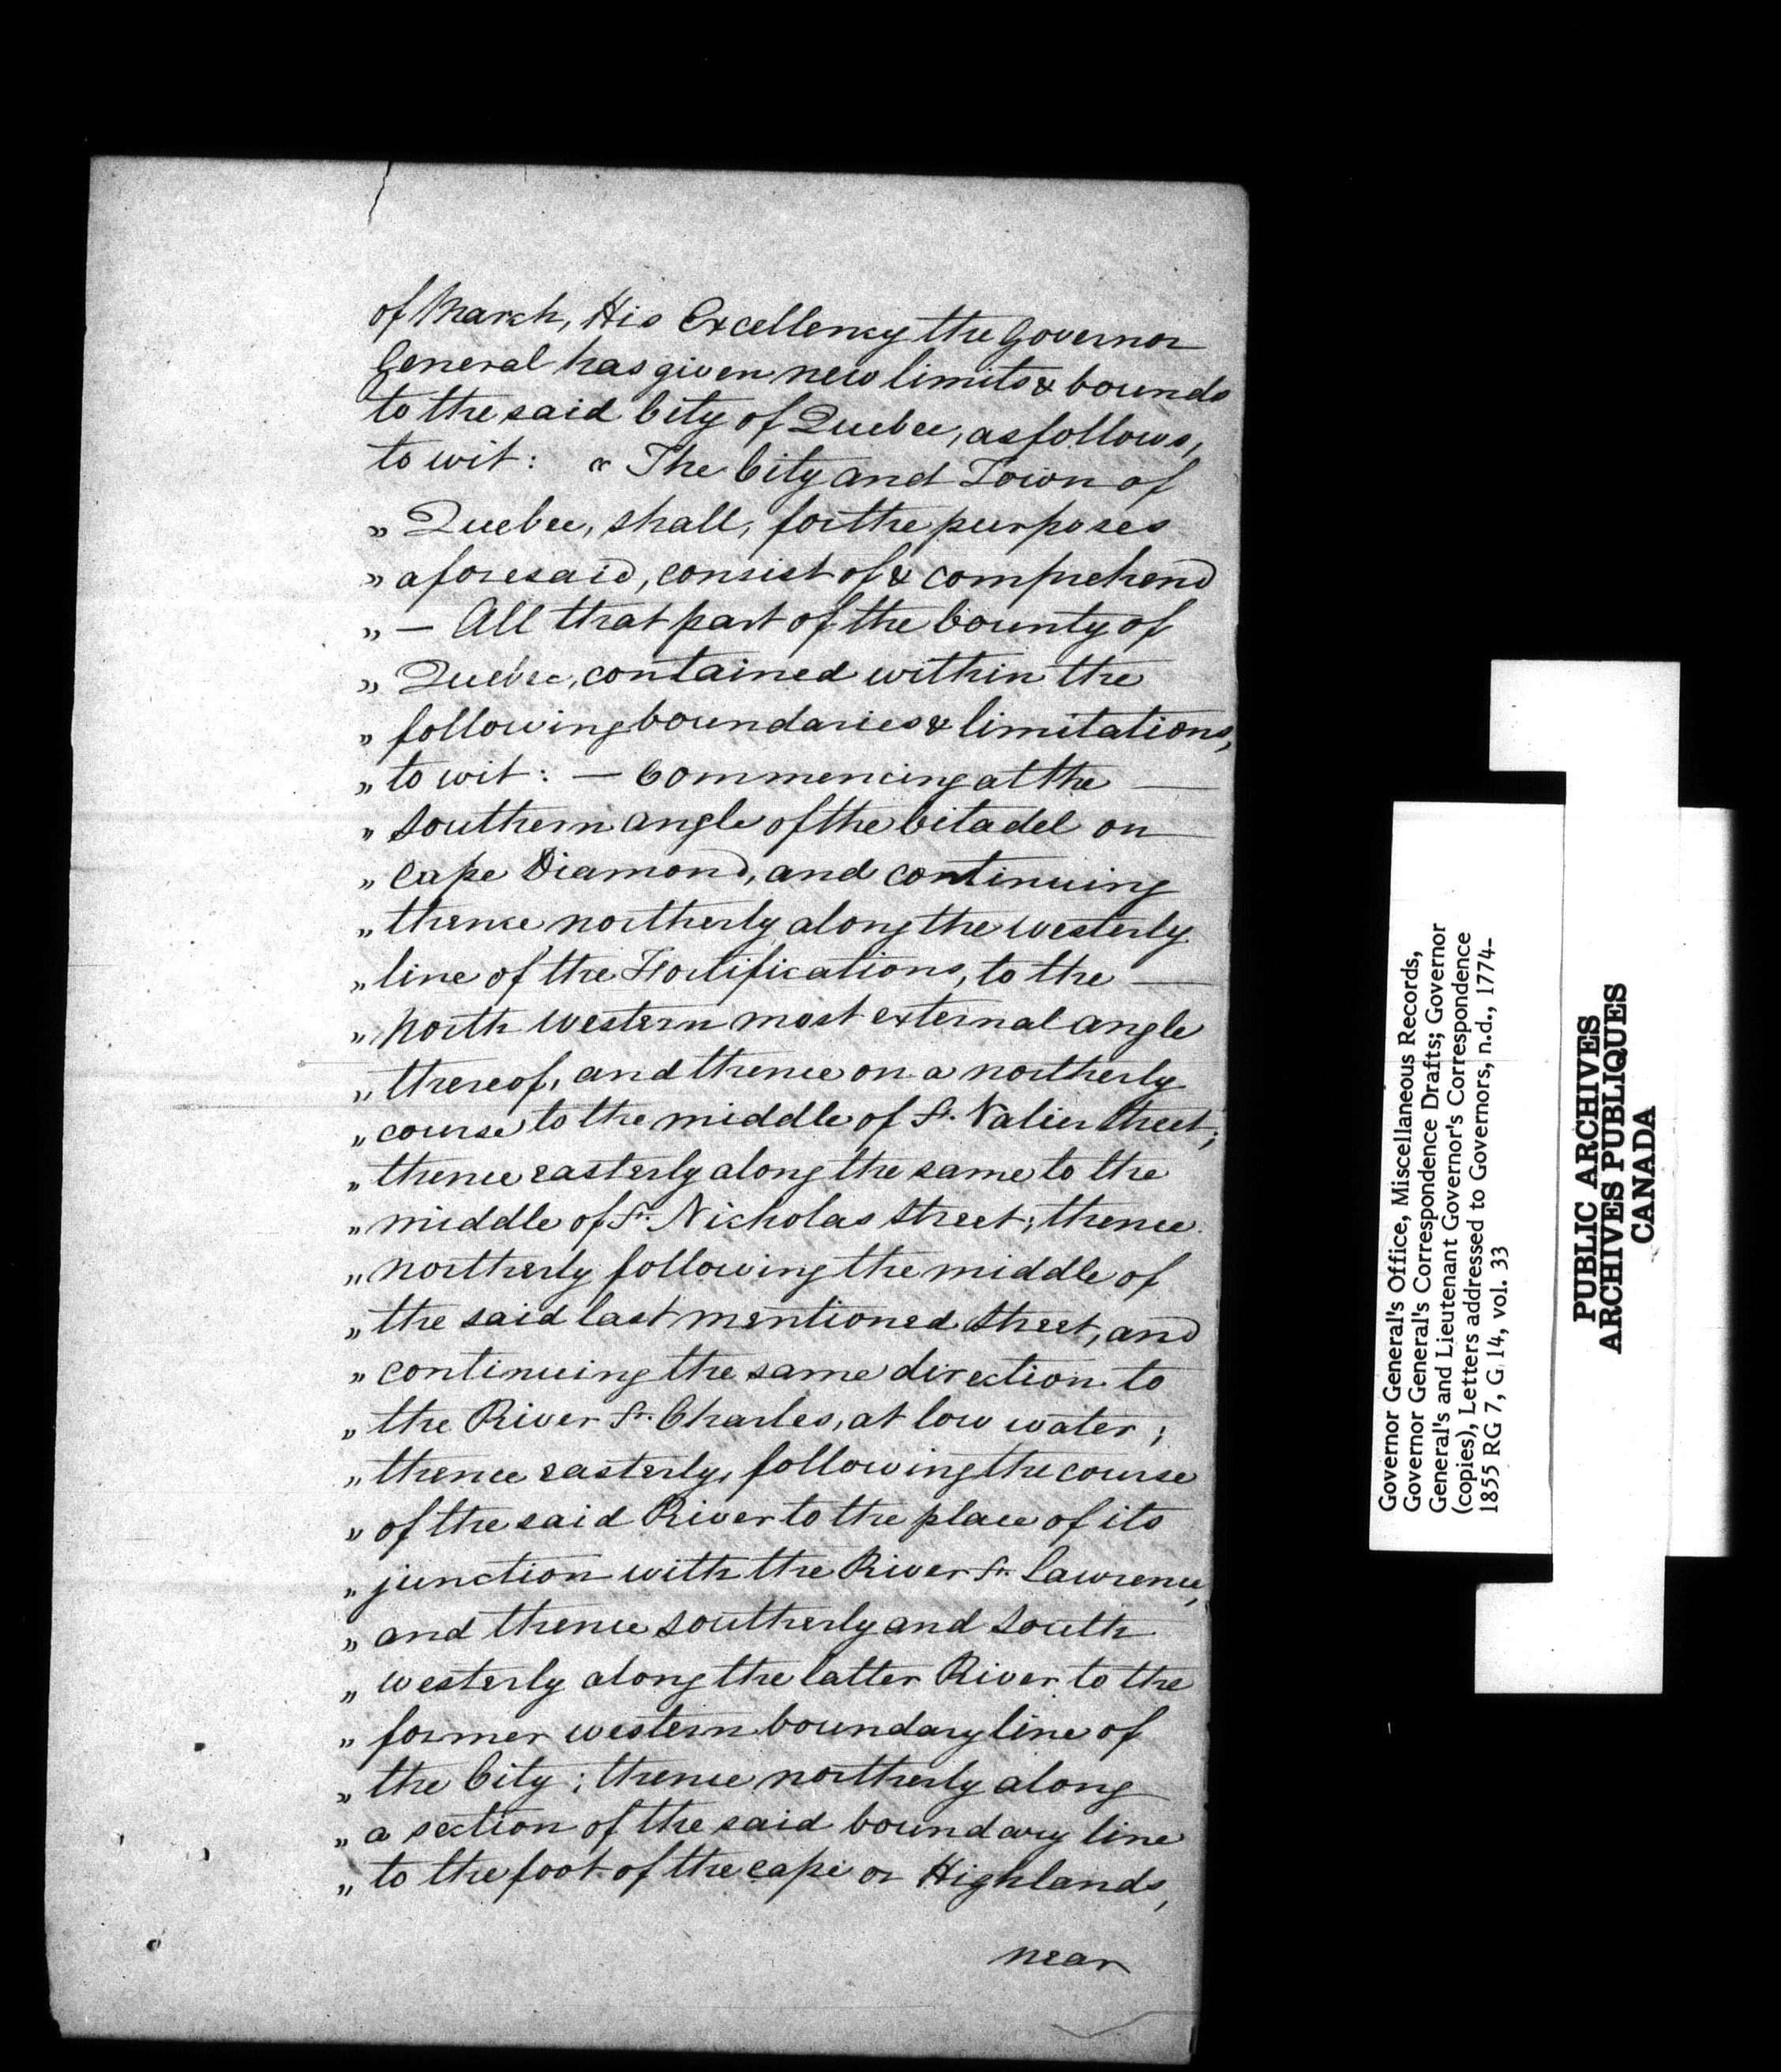 of March, His Excellency the Governor
General has given new limits & bounds
to the said City of Quebec, as follows,
to wit: " The City and Town of
" Quebec, shall, for the purposes
" aforesaid, consist of & comprehend
" — All that part of the County of
" Quebec, contained within the
" following boundaries & limitations,
" to wit: — Commencing at the —
" Southern angle of the Citadel on
" Cape Diamond, and continuing
" thence northerly along the westerly
" line of the Fortifications, to the —
" North western most external angle
" thereof, and thence on a northerly
" course to the middle of St. Valier Street;
" thence easterly along the same to the
" middle of St. Nicholas Street; thence
" Northerly following the middle of
" the said last mentioned Street, and
" continuing the same direction to
" the River St. Charles, at low water;
" thence easterly, following the course
" of the said River to the place of its
" junction with the River St. Lawrence,
" and thence southerly and South
" westerly along the latter River to the
" former western boundary line of
" the City; thence northerly along
" a section of the said boundary line
" to the foot of the cape or Highlands,
near
Governor General's Office, Miscellaneous Records,
Governor General's Correspondence Drafts; Governor
General's and Lieutenant Governor's Correspondence
(copies), Letters addressed to Governors, n.d., 1774-
1855 RG 7, G 14, vol. 33
PUBLIC ARCHIVES
ARCHIVES PUBLIQUES
CANADA